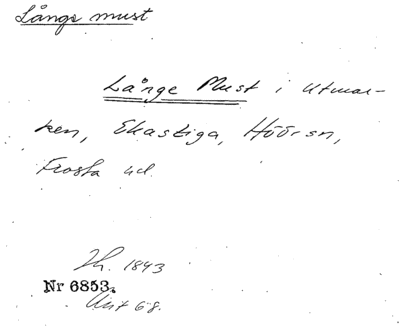 Långe must
Långe Must i utmar-
ken, Ekastiga, Höörs sn,
Frosta hd.
Th. 1843
Nr 6853.
Urt 68.